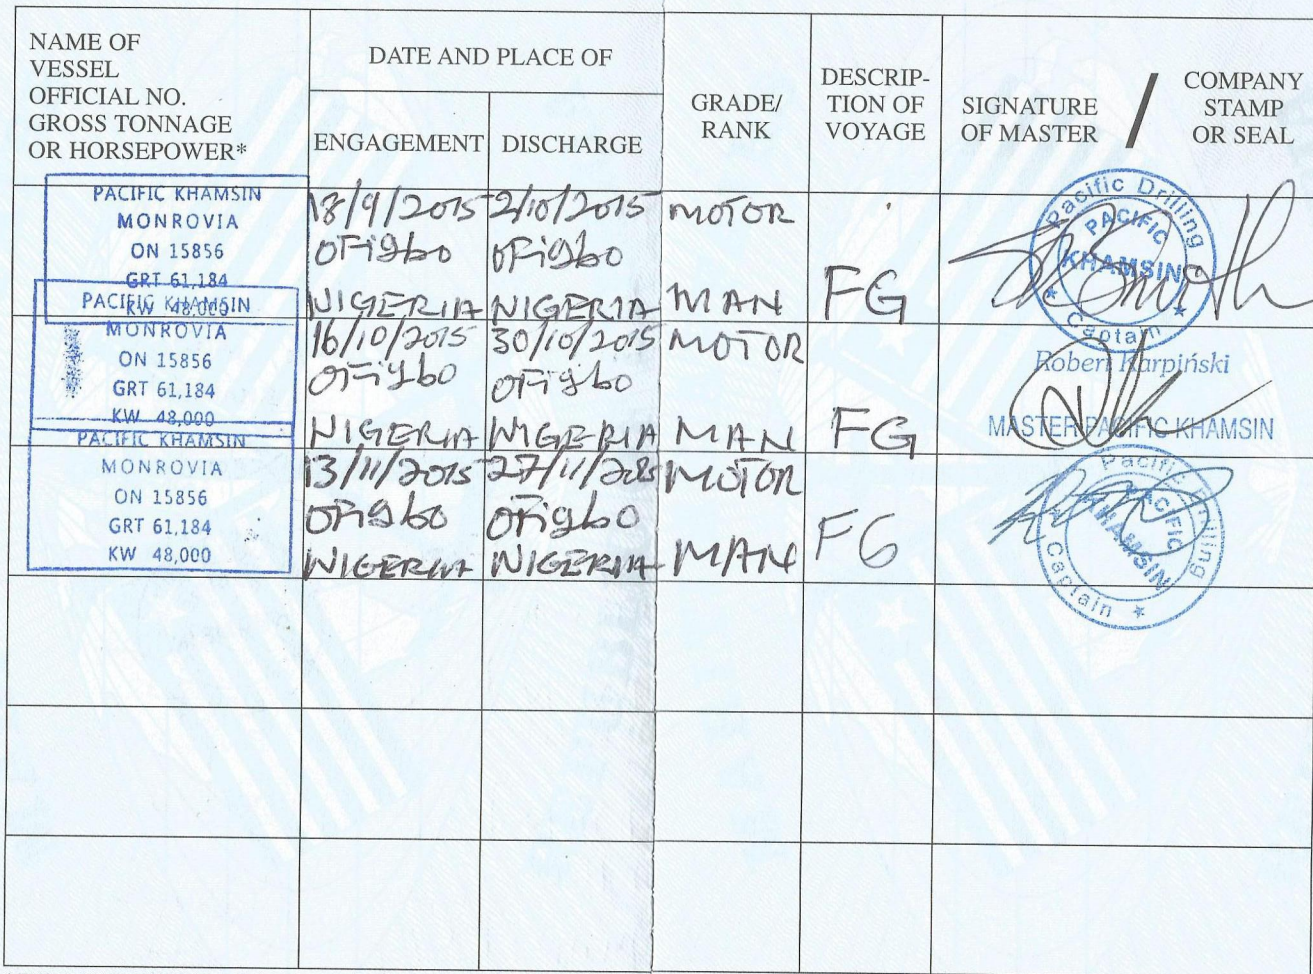 NAME OF
VESSEL
OFFICIAL NO.
GROSS TONNAGE
OR HORSEPOWER*
DATE AND PLACE OF
ENGAGEMENT
DISCHARGE
GRADE/
RANK
DESCRIP-
TION OF
VOYAGE
SIGNATURE
OF MASTER
/
COMPANY
STAMP
OR SEAL
PACIFIC KHAMSIN
MONROVIA
ON 15856
GRT 61,184
KW 48,000
18/9/2015
OFigbo
NIGERIA
2/10/2015
OFigbo
NIGERIA
MOTOR
MAN
FG
Pacific Drilling
PACIFIC
KHAMSIN
Captain
PACIFIC KHAMSIN
MONROVIA
ON 15856
GRT 61,184
KW 48,000
16/10/2015
OFigbo
NIGERIA
30/10/2015
OFigbo
NIGERIA
MOTOR
MAN
FG
Robert Karpiński
MASTER PACIFIC KHAMSIN
PACIFIC KHAMSIN
MONROVIA
ON 15856
GRT 61,184
KW 48,000
13/11/2015
OFigbo
NIGERIA
27/11/2015
OFigbo
NIGERIA
MOTOR
MAN
FG
Pacific Drilling
PACIFIC
KHAMSIN
Captain